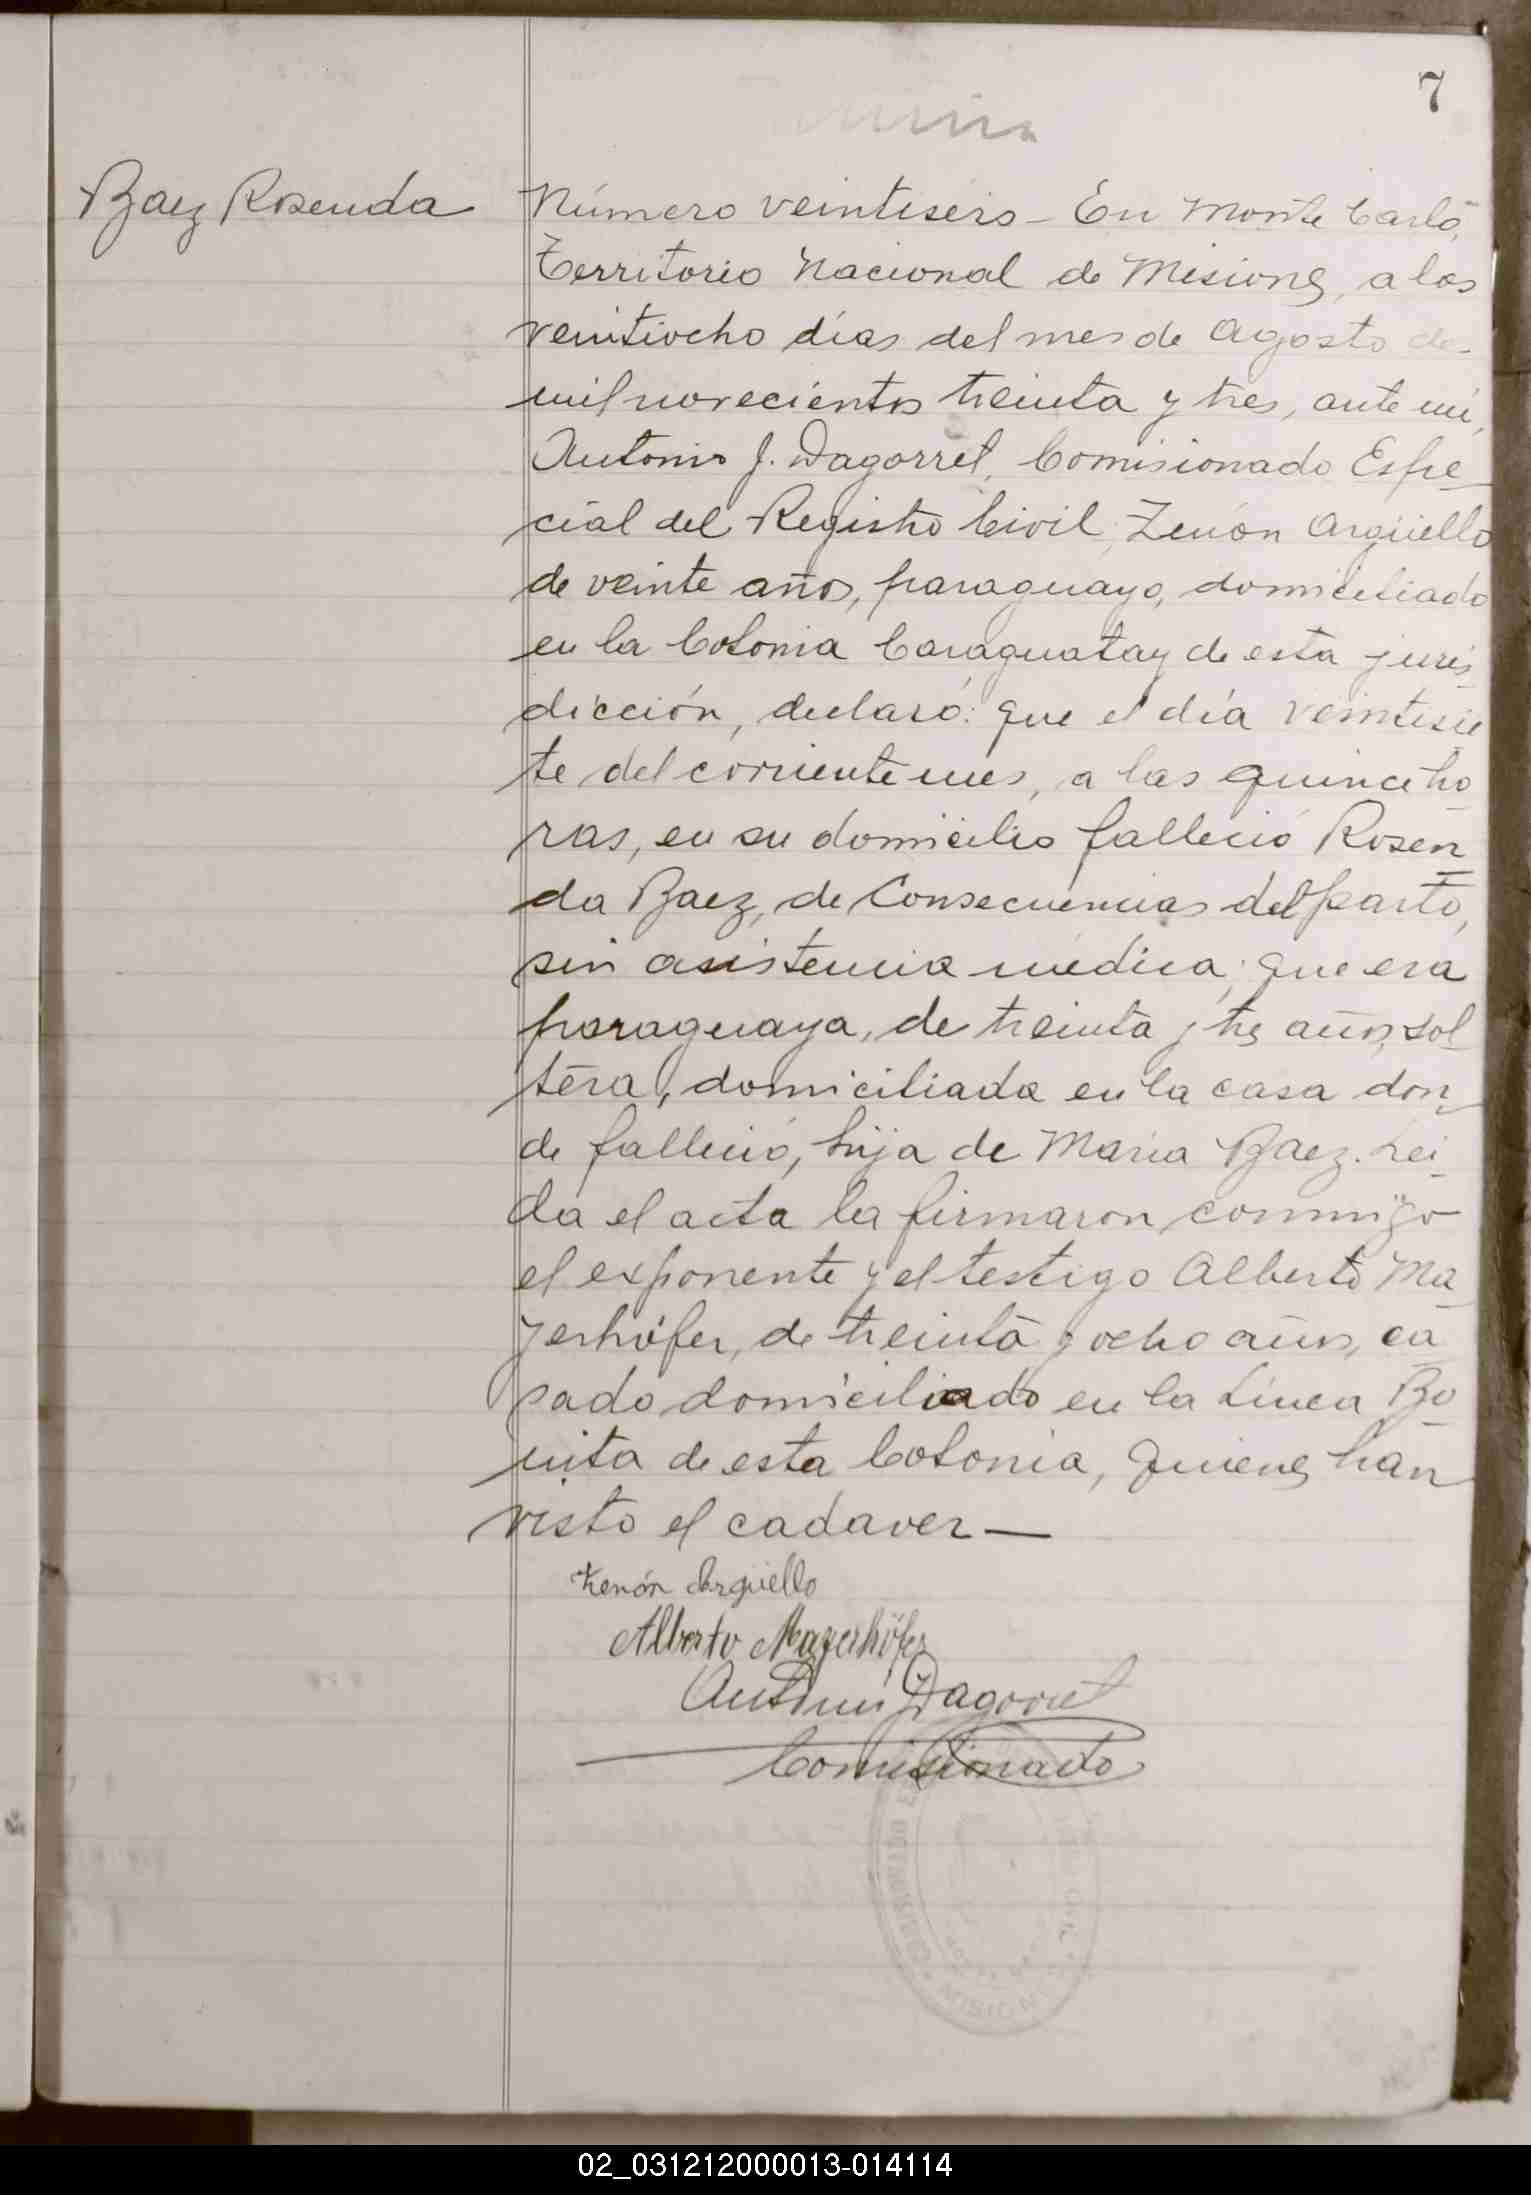 7
Baez Rosenda
Número veintiseis - En Monte Carlo,
Territorio Nacional de Misiones, a los
veintiocho días del mes de Agosto de
mil novecientos treinta y tres, ante mi,
Antonio J. Dagorret, Comisionado Espe
cial del Registro Civil, Zenón Argüello
de veinte años, paraguayo, domiciliado
en la Colonia Caraguatay de esta juris
dicción, declaró: que el día veintisie
te del corriente mes, a las quince ho
ras, en su domicilio falleció Rosen
da Baez, de Consecuencias del parto,
sin asistencia médica; que era
paraguaya, de treinta y tres años, sol
tera, domiciliada en la casa don
de falleció, hija de María Baez. Lei
da el acta la firmaron conmigo
el exponente y el testigo Alberto Ma
yerhöfer, de treinta y ocho años, ca
sado domiciliado en la Línea Bo
nita de esta Colonia, quienes han
visto el cadaver —
Zenón Argüello
Alberto Mayerhöfer
Antonio J Dagorret
Comisionado
MISIONES
02_031212000013-014114